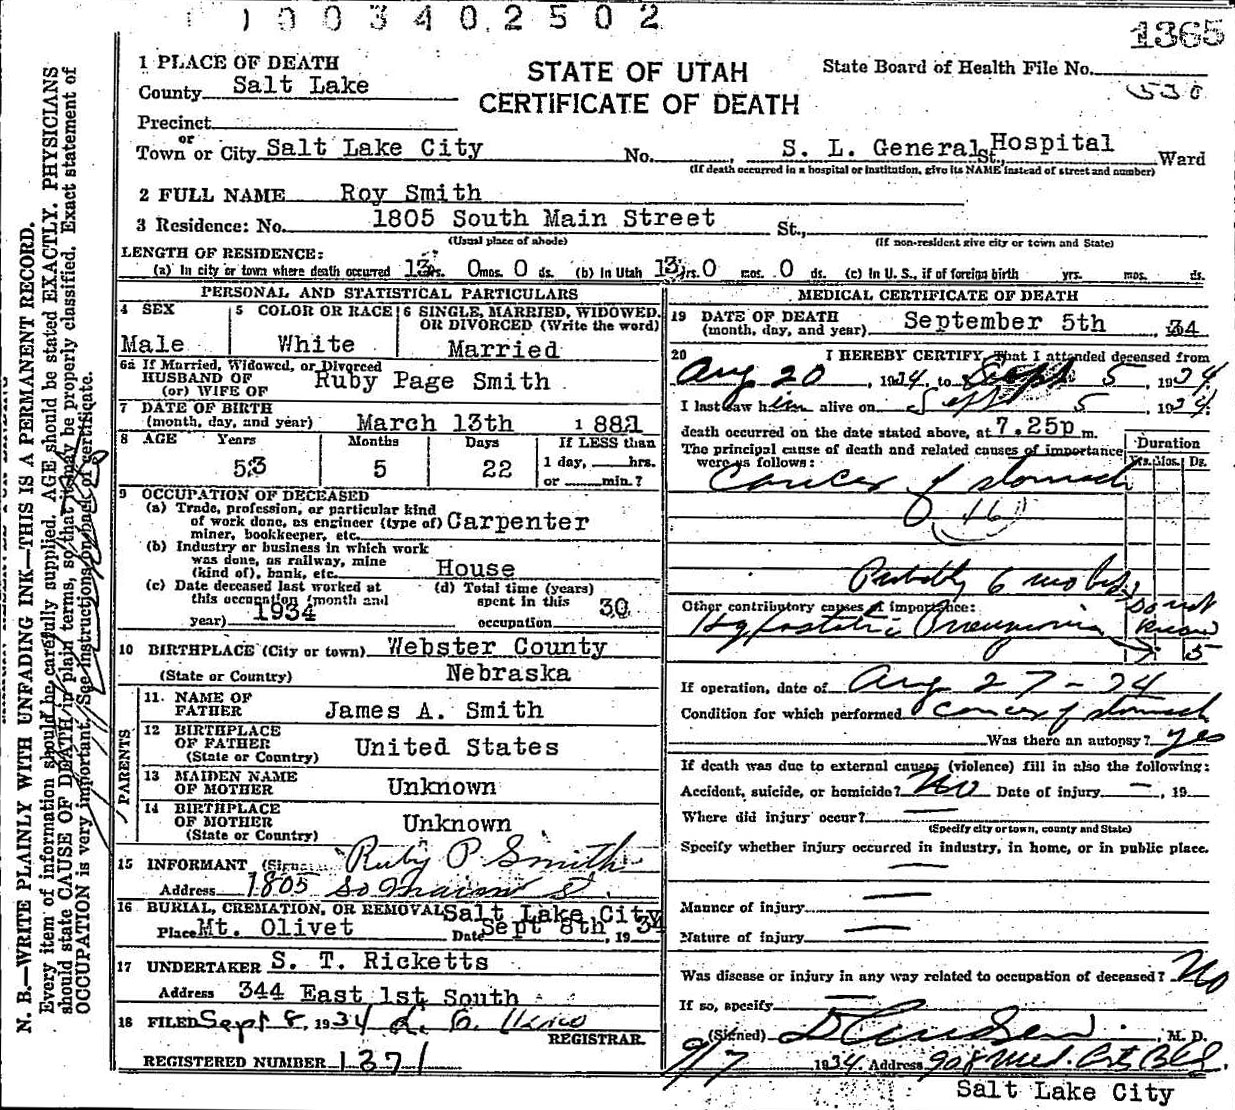 1003402502
1365
1 PLACE OF DEATH
STATE OF UTAH
CERTIFICATE OF DEATH
State Board of Health File No.
530
County Salt Lake
Precinct
or
Town or City Salt Lake City No. , S. L. General St., Hospital Ward
(If death occurred in a hospital or institution, give its NAME instead of street and number)
2 FULL NAME Roy Smith
3 Residence: No. 1805 South Main Street St.,
(Usual place of abode) (If non-resident give city or town and State)
LENGTH OF RESIDENCE:
(a) In city or town where death occurred 13 yrs. 0 mos. 0 ds. (b) In Utah 13 yrs. 0 mos. 0 ds. (c) In U. S., if of foreign birth yrs. mos. ds.
PERSONAL AND STATISTICAL PARTICULARS
4 SEX
Male
5 COLOR OR RACE
White
6 SINGLE, MARRIED, WIDOWED,
OR DIVORCED (Write the word)
Married
6a If Married, Widowed, or Divorced
HUSBAND OF
(or) WIFE OF Ruby Page Smith
7 DATE OF BIRTH
(month, day, and year) March 13th 1881
8 AGE Years Months Days If LESS than
53 5 22 1 day, hrs.
or min.?
9 OCCUPATION OF DECEASED
(a) Trade, profession, or particular kind
of work done, as engineer (type of) Carpenter
miner, bookkeeper, etc.
(b) Industry or business in which work
was done, as railway, mine
(kind of), bank, etc. House
(c) Date deceased last worked at
this occupation (month and
year) 1934
(d) Total time (years)
spent in this 30
occupation
10 BIRTHPLACE (City or town) Webster County
(State or Country) Nebraska
PARENTS
11. NAME OF
FATHER James A. Smith
12 BIRTHPLACE
OF FATHER United States
(State or Country)
13 MAIDEN NAME
OF MOTHER Unknown
14 BIRTHPLACE
OF MOTHER Unknown
(State or Country)
15 INFORMANT (Signed) Ruby P Smith
Address 1805 So Main St.
16 BURIAL, CREMATION, OR REMOVAL Salt Lake City
Place Mt. Olivet Date Sept 8th , 19 34
17 UNDERTAKER S. T. Ricketts
Address 344 East 1st South
18 FILED Sept 8, 1934
REGISTRAR.
REGISTERED NUMBER 1371
MEDICAL CERTIFICATE OF DEATH
19 DATE OF DEATH
(month, day, and year) September 5th , 34
20 I HEREBY CERTIFY, That I attended deceased from
Aug 20 , 1934, to Sept 5 , 1934
I last saw him alive on Sept 5 , 1934.
death occurred on the date stated above, at 7.25p m.
The principal cause of death and related causes of importance
were as follows:
Duration
Yrs. Mos. Ds.
Cancer of stomach
46
Probably 6 mo
Other contributory causes of importance:
Do not
know
Hypostatic Pneumonia 5
If operation, date of Aug 27-34
Condition for which performed Cancer of stomach
Was there an autopsy? yes
If death was due to external causes (violence) fill in also the following:
Accident, suicide, or homicide? No Date of injury — , 19
Where did injury occur? —
(Specify city or town, county and State)
Specify whether injury occurred in industry, in home, or in public place.
—
Manner of injury —
Nature of injury —
Was disease or injury in any way related to occupation of deceased? No
If so, specify —
(Signed) , M. D.
9/7 1934 Address 908 Med. Arts Bld.
Salt Lake City
N. B.—WRITE PLAINLY WITH UNFADING INK—THIS IS A PERMANENT RECORD.
Every item of information should be carefully supplied. AGE should be stated EXACTLY. PHYSICIANS
should state CAUSE OF DEATH in plain terms, so that it may be properly classified. Exact statement of
OCCUPATION is very important. See instructions on back of certificate.